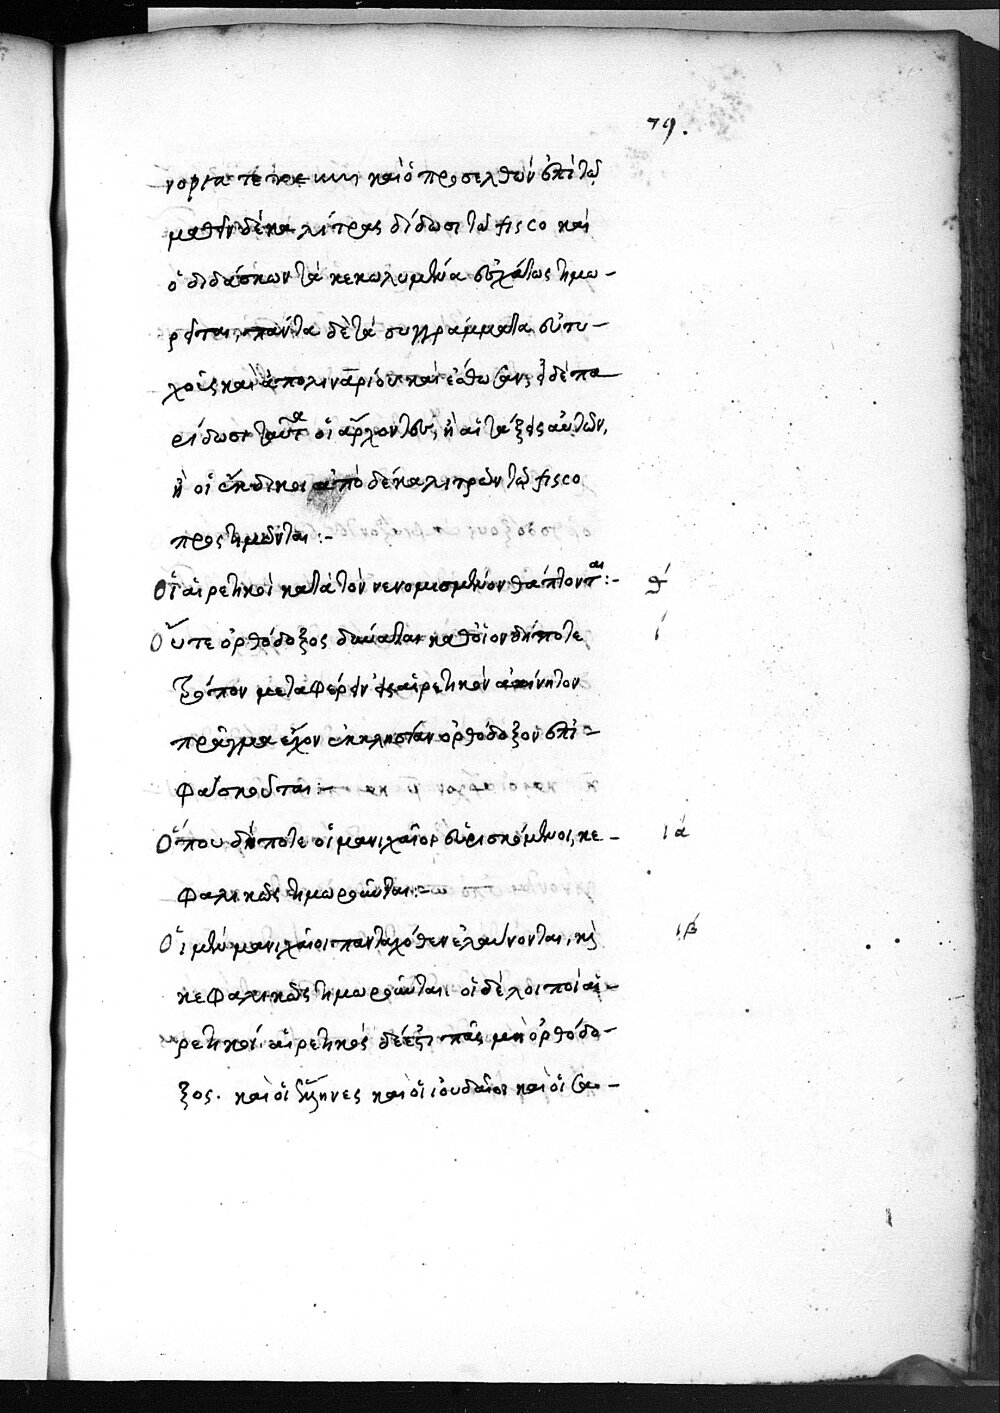 79.
καὶ ὁ προσελθὼν ἐπὶ τῶ
μαθεῖν δέκα λίτρας δίδωσι τῶ fisco καὶ
ὁ διδάσκων τὰ κεκωλυμένα ἐσχάτως τιμω-
ρεῖται, πάντα δὲ τὰ συγγράμματα εὐτυ-
χοῦς καὶ ἀπολιναρίου καὶ εἰ δὲ πα
ρίδωσι ταῦτα οἱ ἄρχοντες, ἢ αἱ τάξεις αὐτῶν,
ἢ οἱ ἔκδικοι ἀπὸ δέκα λιτρῶν τῶ fisco
προστιμῶνται :-
Οἱ αἱρετικοὶ κατὰ τὸν νενομισμένον θάπτονται :- θ
Οὔτε ὀρθόδοξος δύναται καθ' οἱονδήποτε ί
τρόπον μεταφέρειν εἰς αἱρετικὸν ἀκίνητον
πρᾶγμα ἔχον ἐκκλησίαν ὀρθόδοξον ἐπὶ -
φαύσκεται :-
Ὅπου δήποτε οἱ μανιχαῖοι εὑρισκόμενοι, κε - ιά
φαλικῶς τιμωροῦνται :-
Οἱ μὲν μανιχαῖοι πανταχόθεν ἐλαύνονται, καὶ ιβ́
κεφαλικῶς τιμωροῦνται. οἱ δὲ λοιποὶ αἱ -
ρετικοί. αἱρετικὸς δέ ἐστι πᾶς μὴ ὀρθόδο -
ξος. καὶ οἱ ἕλληνες καὶ οἱ ἰουδαῖοι καὶ οἱ σα -